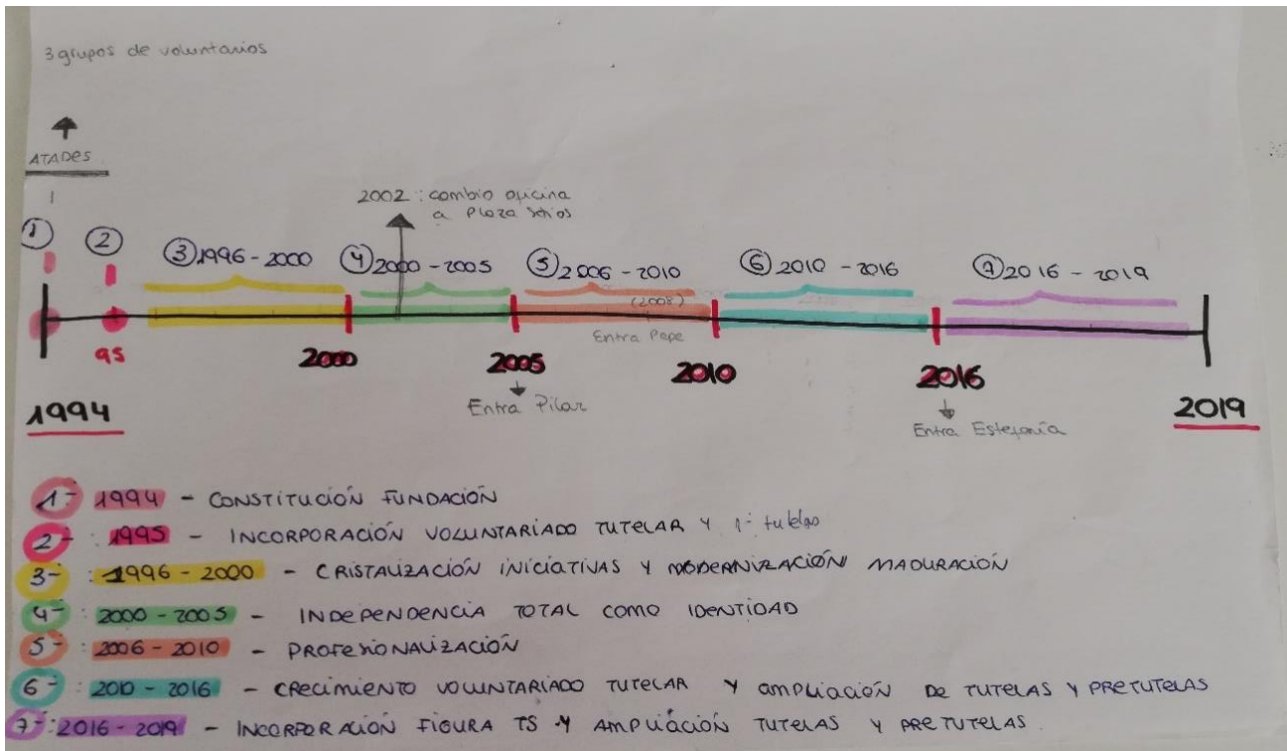 3 grupos de voluntarios
ATADES
2002: cambio oficina
a Plaza
1
2
3 1996-2000
4 2000-2005
5 2006-2010
6 2010-2016
7 2016-2019
(2008)
Entra Pepe
95
2000
2005
2010
2016
1994
2019
Entra Pilar
Entra Estefanía
1- 1994 - CONSTITUCIÓN FUNDACIÓN
2- : 1995 - INCORPORACIÓN VOLUNTARIADO TUTELAR Y 1ª tutelas
3- : 1996-2000 - CRISTALIZACIÓN INICIATIVAS Y MODERNIZACIÓN MADURACIÓN
4- : 2000-2005 - INDEPENDENCIA TOTAL COMO IDENTIDAD
5- : 2006-2010 - PROFESIONALIZACIÓN
6- : 2010-2016 - CRECIMIENTO VOLUNTARIADO TUTELAR Y AMPLIACIÓN DE TUTELAS Y PRETUTELAS
7- : 2016-2019 - INCORPORACIÓN FIGURA TS Y AMPLIACIÓN TUTELAS Y PRETUTELAS.